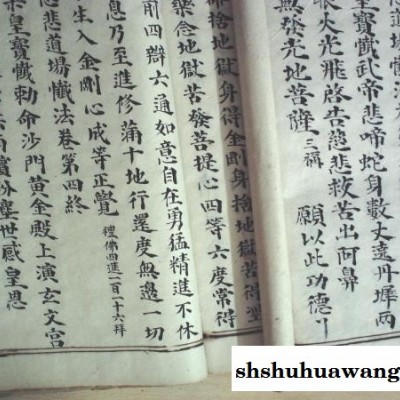 皇寶懺武帝悲啼蛇身數丈遠丹墀兩
眼火光飛啓告慈悲救苦出阿鼻
無發光地菩薩三稱 願以此功德
捨地獄身得金剛身捨地獄苦得
樂念地獄苦發菩提心四等六度常得
前四辯六通如意自在勇猛精進不休
息乃至進修滿十地行還度無邊一切
生入金剛心成等正覺 禮佛四進一百一十六拜
悲道場懺法卷第四終
皇寶懺勅命沙門黃金殿上演玄文宮
塵世感皇恩
shshuhuawang